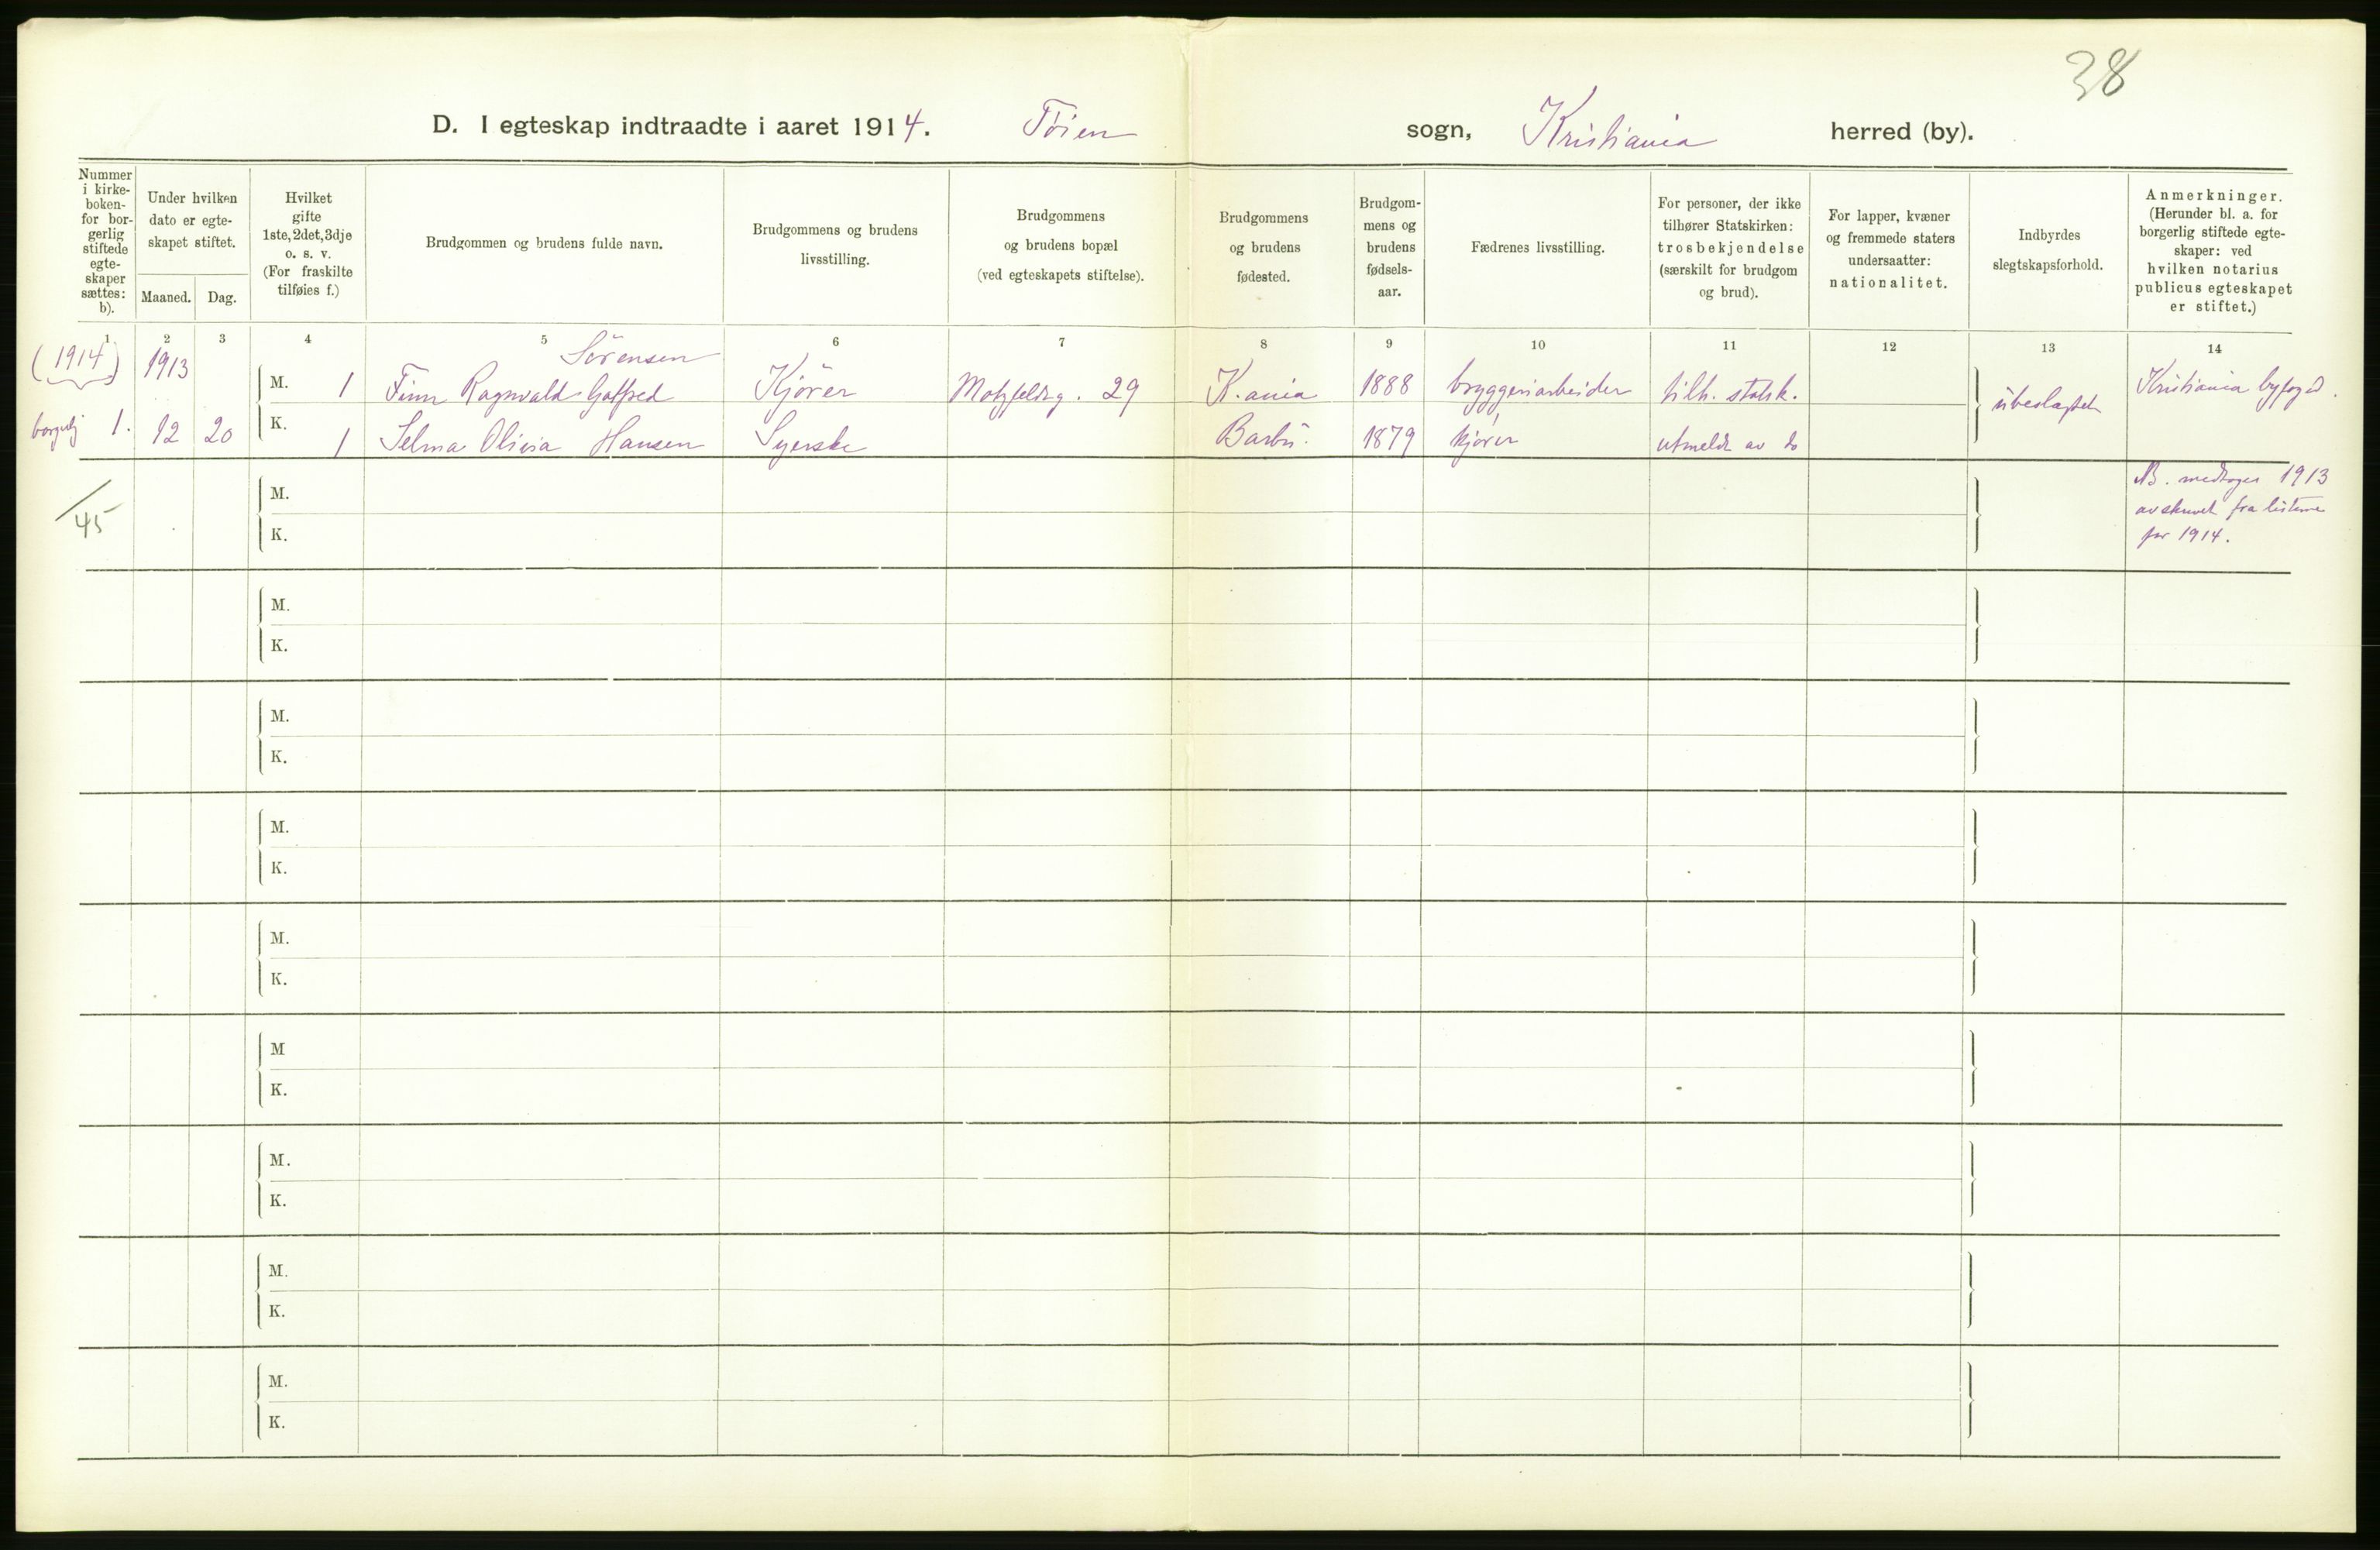 38
D. I egteskap indtraadte i aaret 1914. Tøien sogn, Kristiania herred (by).
Nummer i kirke-boken- for bor-gerlig stiftede egte-skaper sættes: b).
Under hvilken dato er egte-skapet stiftet.
Maaned. Dag.
Hvilket gifte 1ste, 2det, 3dje o. s. v. (For fraskilte tilføies f.)
Brudgommen og brudens fulde navn.
Brudgommens og brudens livsstilling.
Brudgommens og brudens bopæl (ved egteskapets stiftelse).
Brudgommens og brudens fødested.
Brudgom-mens og brudens fødsels-aar.
Fædrenes livsstilling.
For personer, der ikke tilhører Statskirken: trosbekjendelse (særskilt for brudgom og brud).
For lapper, kvæner og fremmede staters undersaatter: nationalitet.
Indbyrdes slegtskapsforhold.
Anmerkninger. (Herunder bl. a. for borgerlig stiftede egte-skaper: ved hvilken notarius publicus egteskapet er stiftet.)
1 2 3 4 5 6 7 8 9 10 11 12 13 14
(1914) 1913 M. 1 Finn Ragnvald Gotfred Sørensen Kjører Motzfeldsg. 29 K.ania 1888 bryggeriarbeider tilh. statsk. ubeslægtet Kristiania byfogd.
borgerlig 1. 12 20 K. 1 Selma Olivia Hansen Syerske Barbu. 1879 kjører utmeldt av do
/45
M.
K.
NB. medtages 1913
avskrevet fra listerne
for 1914.
M.
K.
M.
K.
M.
K.
M.
K.
M
K.
M.
K.
M.
K.
M.
K.